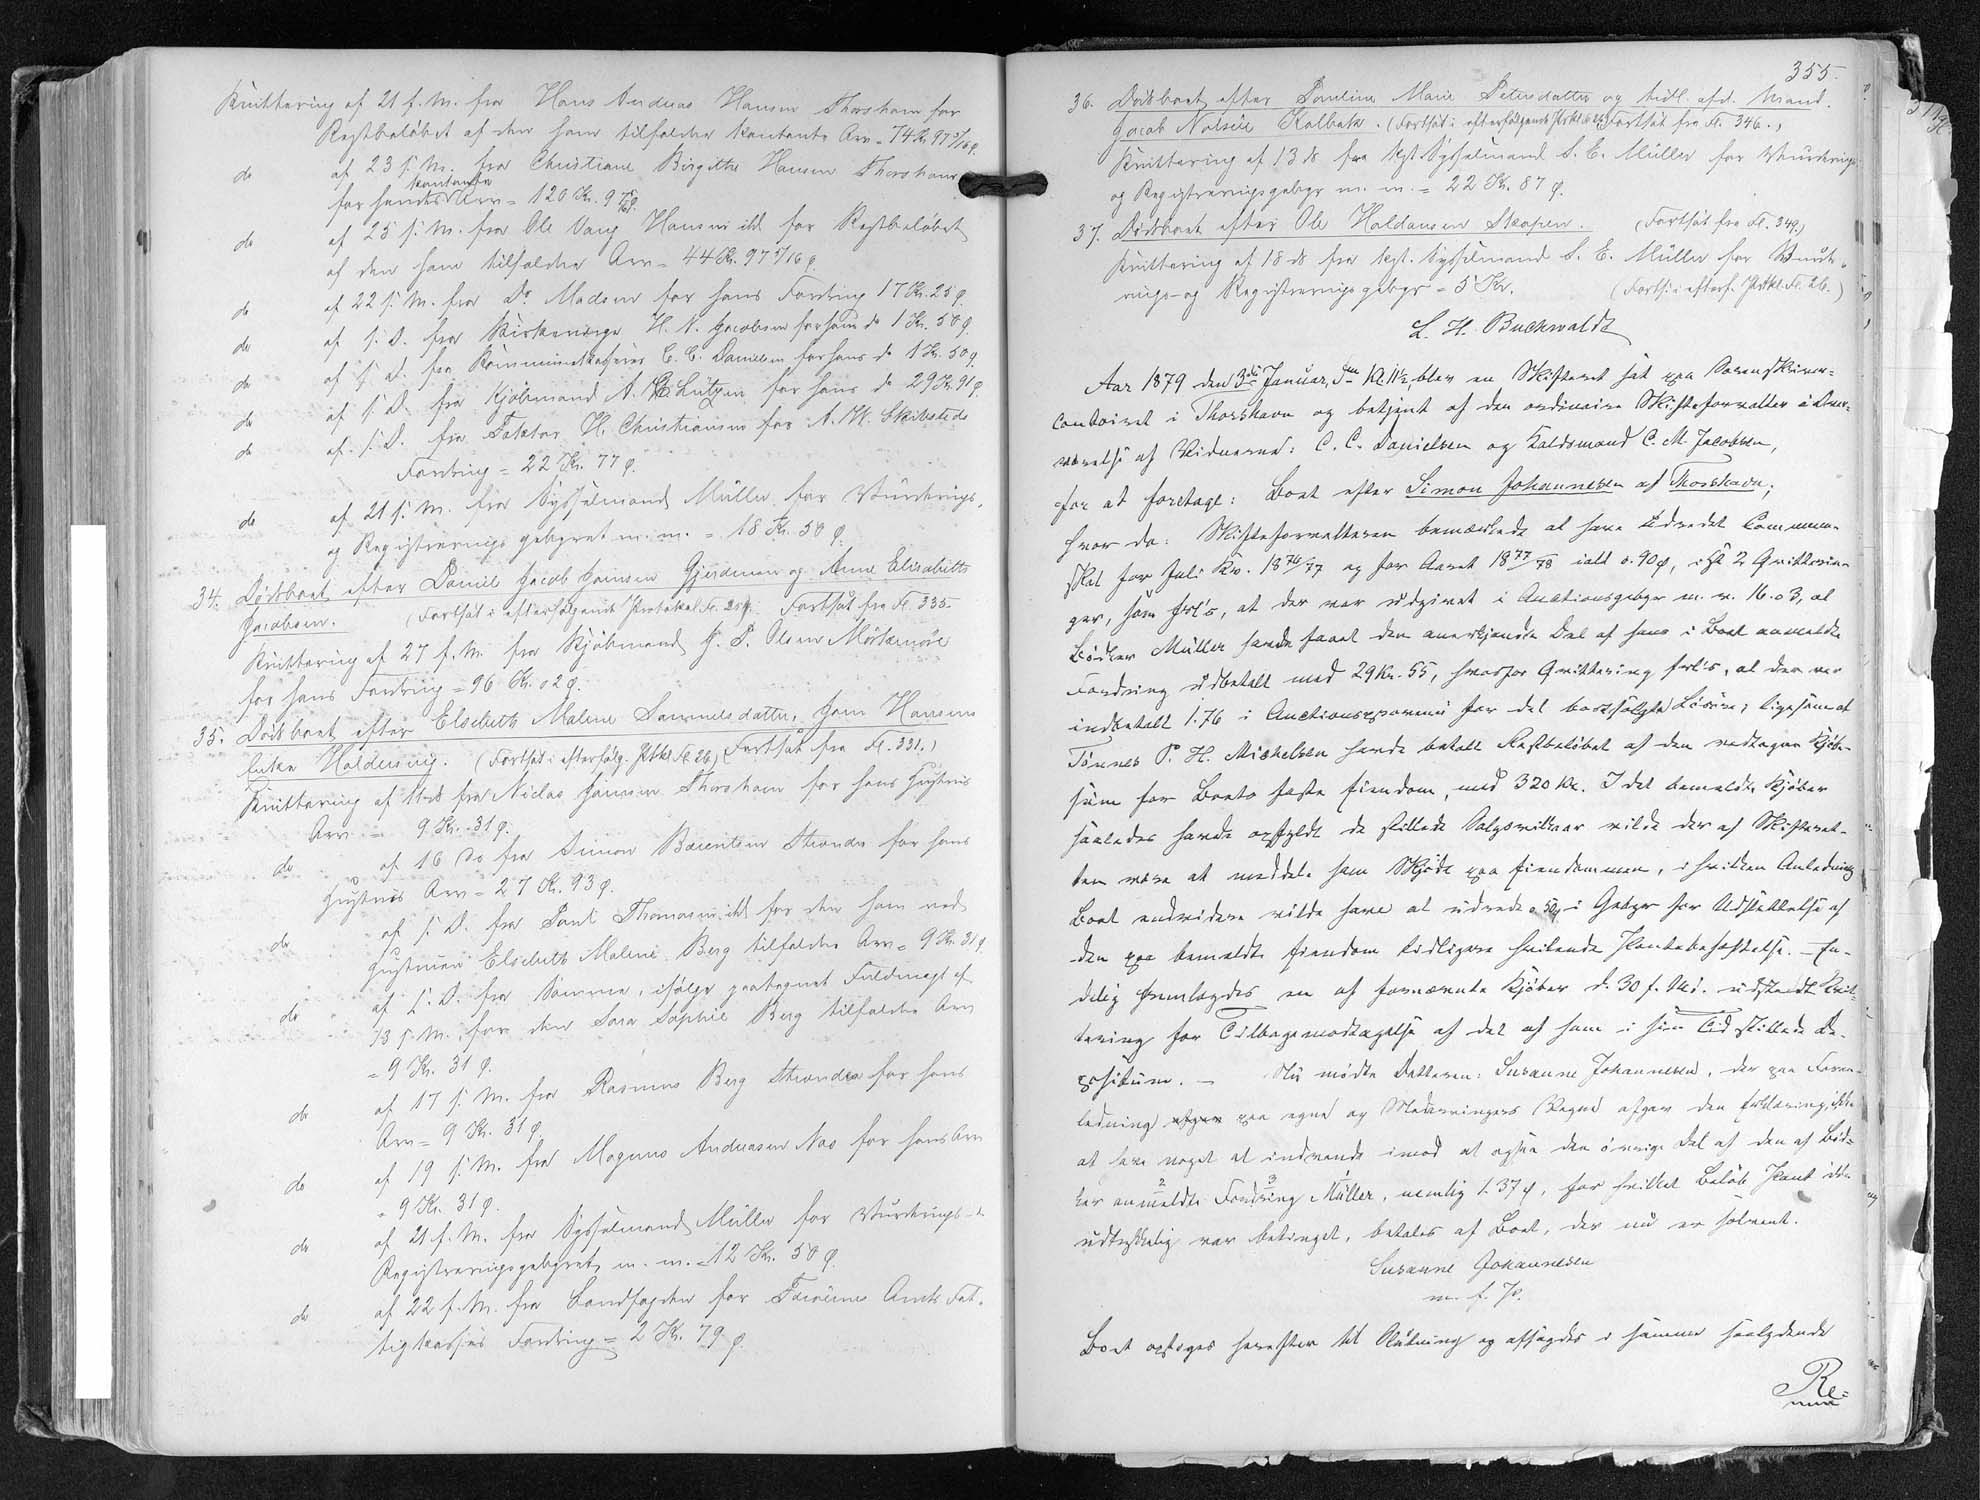 Kvittering af 21 f. M. fra Hans Andreas Hansen Thorshavn for
Restbeløbet af den ham tilfaldne kontante Arv = 74 Kr 97 5/16 ø.
do af 23 s. M. fra Christiane Birgitte Hansen Thorshavn
for hendes kontante Arv = 120 Kr. 9
do af 25 s. M. fra Ole Vang Hansen ibd for Restbeløbet
af den ham tilfaldne Arv = 44 Kr. 97 5/16 ø.
do af 22 s. M. fra Dr. Madsen for hans Fordring 17 Kr. 25 ø.
do af s. D. fra Kirkeværge H. N. Jacobsen for ham do 1 Kr. 50 ø.
do af s. D. fra Kommunekasserer C. C. Danielsen for hans do 1 Kr. 50 ø.
do af s. D. fra Kjøbmand A. Lützen for hans do 29 Kr. 91 ø.
do af s. D. fra Faktor H. Christiansen for A. W. Skibsteds
Fordring = 22 Kr. 77 ø.
do af 21 s. M. fra Sysselmand Müller for Vurderings-
og Registreringsgebyret m. m. = 18 Kr. 50 ø.
34. Dødsboet efter Daniel Jacob Joensen Gjerdmen og Anne Elisabeth
Jacobsen. (Fortsat i efterfølgende Protokol Fl. 25). Fortsat fra Fl. 335.
Kvittering af 27 f. M. fra Kjøbmand J. P. Olsen Mörkenøre
for hans Fordring = 96 Kr. 02 ø.
35. Dødsboet efter Elsebeth Malene Samuelsdatter, Joen Hansens
Enke Haldersvig. (Fortsat i efterfølg. Prtkl. Fl. 26) (Fortsat fra Fl. 331.)
Kvittering af 11 ds fra Niclas Joensen Thorshavn for hans Hustrus
Arv = 9 Kr. 31 ø.
do af 16 do fra Simon Bærentsen Strendre for hans
Hustrus Arv = 27 Kr. 93 ø.
do af s. D. fra Poul Thomasen ibd for den ham ved
Hustruen Elsebeth Malene Berg tilfaldne Arv = 9 Kr. 31 ø.
do af s. D. fra Samme, ifølge paategnet Fuldmagt af
13 s. M., for den Sara Sophie Berg tilfaldne Arv
= 9 Kr. 31 ø.
do af 17 s. M. fra Rasmus Berg Strendre for hans
Arv = 9 Kr. 31 ø.
do af 19 s. M. fra Magnus Andreasen Næs for hans Arv
= 9 Kr. 31 ø.
do af 21 s. M. fra Sysselmand Müller for Vurderings- &
Registreringsgebyret m. m. = 12 Kr. 50 ø.
do af 22 s. M. fra Landfogden for Færøernes Amts Fat-
tigkasses Fordring = 2 Kr. 79 ø.
355.
36. Dødsboet efter Pauline Marie Petersdatter og tidl. afd. Mand
Jacob Nolsøe Kolbak. (Fortsat i efterfølgende Prtkl. ) (Fortsat fra Fl. 346.)
Kvittering af 13 ds fra Kgl. Sysselmand S. E. Müller for Vurderings-
og Registreringsgebyr m. m. = 22 Kr. 87 ø.
37. Dødsboet efter Ole Haldansen Skopen. (Fortsat fra Fl. 349.)
Kvittering af 18 ds fra Kgl. Sysselmand S. E. Müller for Vurde-
rings- og Registreringsgebyr = 5 Kr. (Forts. i efterf. Prtkl. Fl. 26.)
L. H. Buchwaldt
Aar 1879 den 3die Januar, Fm. Kl. 11½, blev en Skifteret sat paa Sorenskriver-
contoiret i Thorshavn og betjent af den ordinaire Skifteforvalter i Over-
værelse af Vidnerne: C. C. Danielsen og Kaldsmand C. M. Jacobsen,
for at foretage: Boet efter Simon Johannesen af Thorshavn;
hvor da: Skifteforvalteren bemærkede at have udredet Commune-
skat for Juli Kv. 1876/77 og for Aaret 1877/78 ialt 0.90 ø, ifl. 2 Qvitterin-
ger, som frl's, at der var udgivet i Auctionsgebyr m. v. 16.03, at
Bødker Müller havde faaet den anerkjendte Del af hans i Boet anmeldte
Fordring udbetalt med 29 Kr. 55, hvorfor Qvittering frl's, at der var
indbetalt 1.76 i Auctionsprovenu for det bortsolgte Løsøre; ligesom at
Tønnes P. H. Michelsen havde betalt Restbeløbet af den vedtagne Kjøbe-
sum for Boets faste Eiendom, med 320 Kr. I det bemeldte Kjøber
saaledes havde opfyldt de stillede Salgsvilkaar vilde der af Skifteret-
ten være at meddele ham Skjøde paa Eiendommen, i hvilken Anledning
Boet endvidere vilde have at udrede 0.50 ø i Gebyr for Udslettelse af
den paa bemeldte Eiendom tidligere hvilende Pantebehæftelse. — En-
delig fremlagdes en af fornævnte Kjøber d. 30 f. Md. udstedt Kvit-
tering for Tilbagemodtagelse af det af ham i sin Tid stillede De-
positum. — Nu mødte Datteren: Susanne Johannesen, der paa Foran-
ledning afgav paa egne og Medarvingers Vegne afgav den Erklæring, ikke
at have noget at indvende imod at ogsaa den øvrige Del af den af Bød-
ker anmeldte Fordring Müller, nemlig 1.37 ø, for hvilket Beløb Pant ikke
udtrykkelig var betinget, betales af Boet, der nu er solvent.
Susanne Johannesen
m. f. P.
Boet optoges herefter til Slutning og afsagdes i samme saalydende
Re-